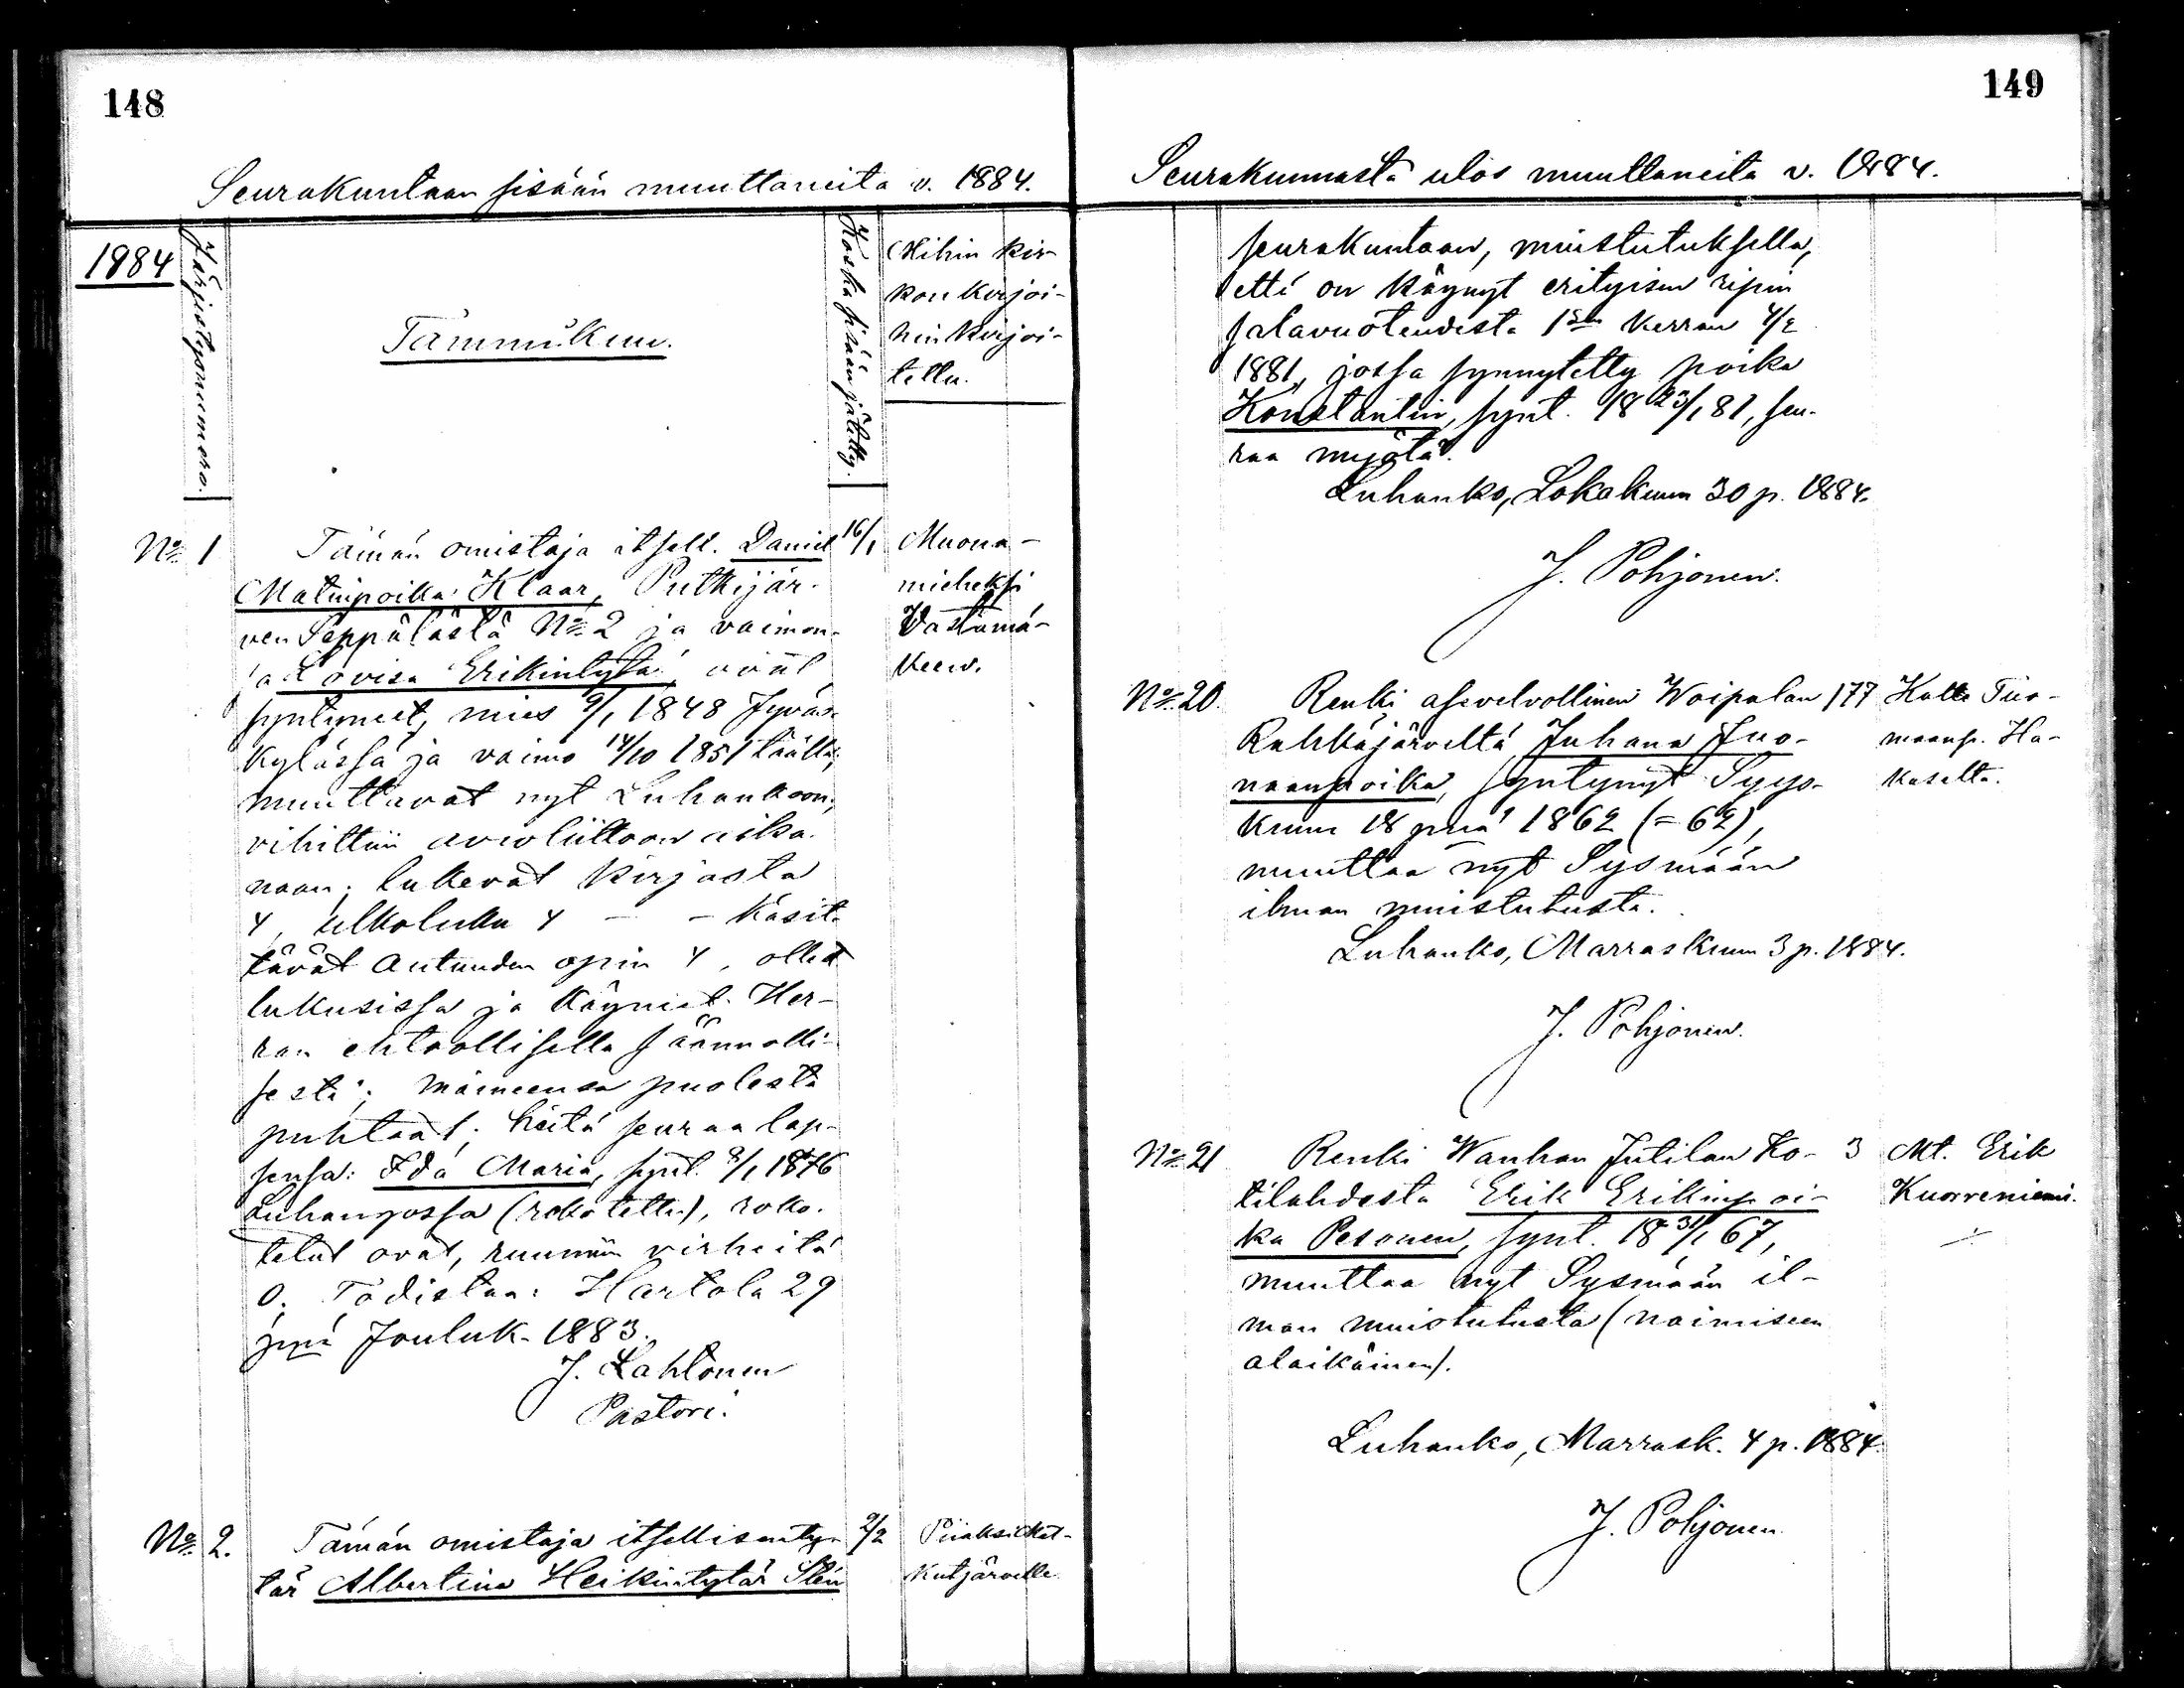 148
Seurakuntaan sisään muuttaneita v. 1884.
1884
Järjestysnumero.
Tammikuu.
Koska sisään jätetty.
Mihin kir-
kon kirjoi-
hin kirjoi-
tettu.
No 1
Tämän omistaja itsell. Daniel
16/1
Muona-
Matinpoika Klaar, Putkijär-
mieheksi
ven Seppälästä No 2 ja vaimon-
Västämä-
sa Lovisa Erikintytär, ovat
keen.
syntyneet, mies 9/1 1848 Jyväs-
kylässä ja vaimo 14/10 1851 täällä;
muuttavat nyt Luhankoon;
vihittiin avioliittoon aika-
naan; lukevat kirjasta
4, ulkoluku 4 - - käsit-
tävät autuuden opin 4, olleet
lukusissa ja käyneet Her-
ran ehtoollisella säännölli-
sesti; maineensa puolesta
puhtaat; heitä seuraa lap-
sensa: Ida Maria, synt. 8/1 1876
Luhangossa (rokotettu), roko-
tetut ovat, ruumiin virheitä
0. Todistaa: Hartola 29
pnä Jouluk. 1883.
J. Lahtonen
Pastori.
No 2.
Tämän omistaja itsellisenty-
2/2
Piiaksi
tär Albertina Heikintytär Sten
149
Seurakunnasta ulos muuttaneita v. 1884.
seurakuntaan, muistutuksella,
että on käynyt erityisen ripin
salavuoteudesta 1sen kerran 4/2
1881, jossa synnytetty poika
Konstantin, synt. 18 23/1 81, seu-
raa myötä.
Luhanko, Lokakuun 30 p. 1884.
J. Pohjonen.
No 20.
Renki asevelvollinen Woipalan
177
Kalle Tuo-
Rahkajärveltä Juhana Juo-
maanp. Ha-
naanpoika, syntynyt Syys-
kaselta.
kuun 18 pnä 1862 (= 62),
muuttaa nyt Sysmään
ilman muistutusta.
Luhanko, Marraskuun 3 p. 1884.
J. Pohjonen.
No 21
Renki Wanhan Jutilan Ko-
3
Mt. Erik
tilahdesta Erik Erikinpoi-
Kuorreniemi.
ka Pesonen, synt. 18 31/1 67,
muuttaa nyt Sysmään il-
man muistutusta (naimiseen
alaikäinen).
Luhanko, Marrask. 4 p. 1884.
J. Pohjonen.